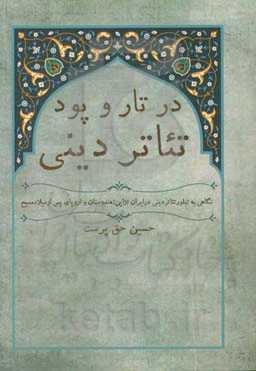 در تار و پود
تئاتر دینی
نگاهی به تطور تئاتر دینی در ایران، ژاپن، هندوستان و اروپای پس از میلاد مسیح
حسین حق پرست